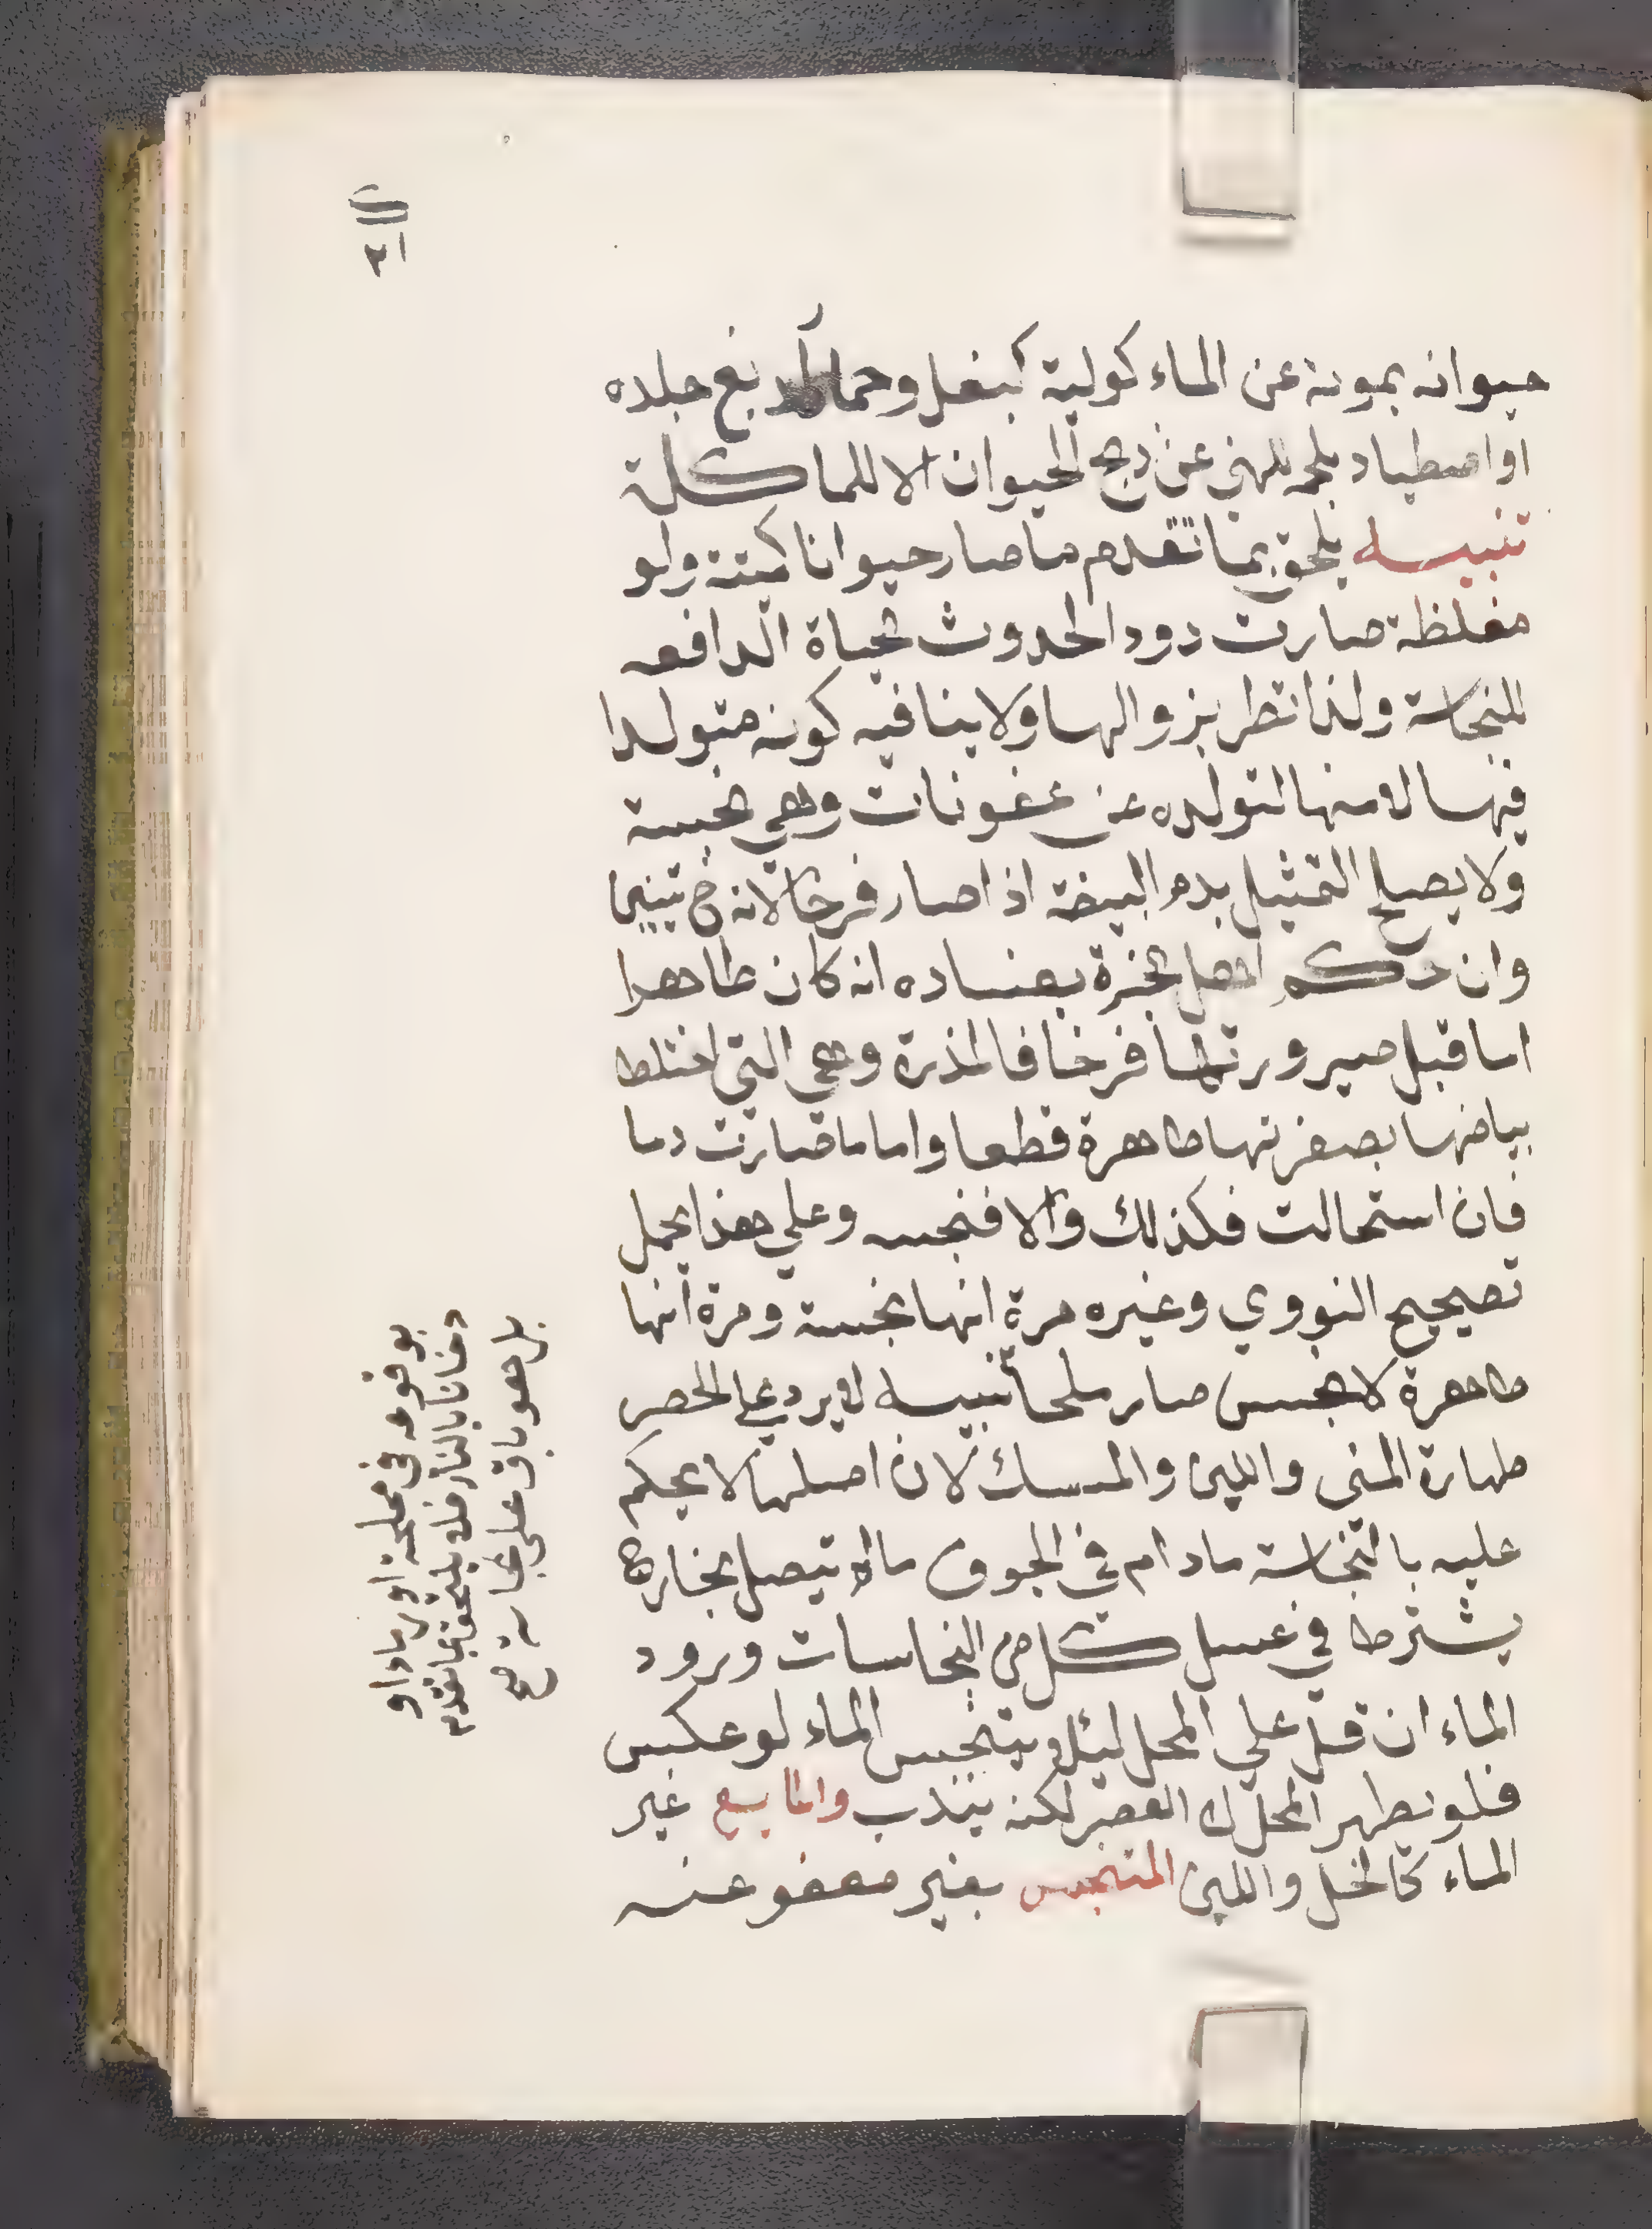 حيوانه بموته عن الماء كوليه كبغل وحمار لدبغ جلده
او اصطياد بلحمه للنهي عن ذبح الحيوان الا للماكلة
تنبيه يلحق بما تقدم ما صار حيوانا كميتة ولو
مغلظة صارت دودا لحدوث الحياة الدافعه
للنجاسة ولذا تطرا بزوالها ولا ينافيه كونه متولدا
فيها لا منها لتولده عن عفونات وهي نجسة
ولا يصلح التمثيل بدم البيضة اذا صار فرخا لانه ح تبين
وان حكم اهل الخبرة بفساده انه كان طاهرا
اما قبل صيرورتها فرخا فالمذرة وهي التي اختلط
بياضها بصفرتها طاهرة قطعا واما ما صارت دما
فان استحالت فكذلك والا فنجسه وعلي هذا يحمل
تصحيح النووي وغيره مرة انها نجسة ومرة انها
طاهرة لا نجس صار ملحا تنبيه لا يرد علي الحصر
طهارة المني واللبن والمسك لان اصلها لا يحكم
عليه بالنجاسة مادام في الجوف مالم يتصل بخارج
يشترط في غسل كل من النجاسات ورود
الماء ان قل علي المحل ليلا يتنجس الماء لو عكس
فلو يطهر المحل لا العصر لكنه يندب والمايع غير
الماء كالخل واللبن المتنجس بغير معفو عنه
بوقوعه في مملحة او رمادا او
دخانا بالنار فلا يلحق بما تقدم
بل هو باق على نجاسة صح